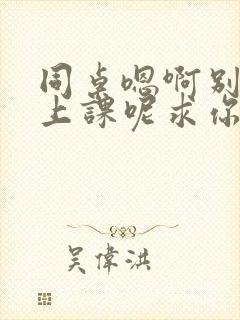 同桌嗯啊别
上課呢求你
吴偉洪